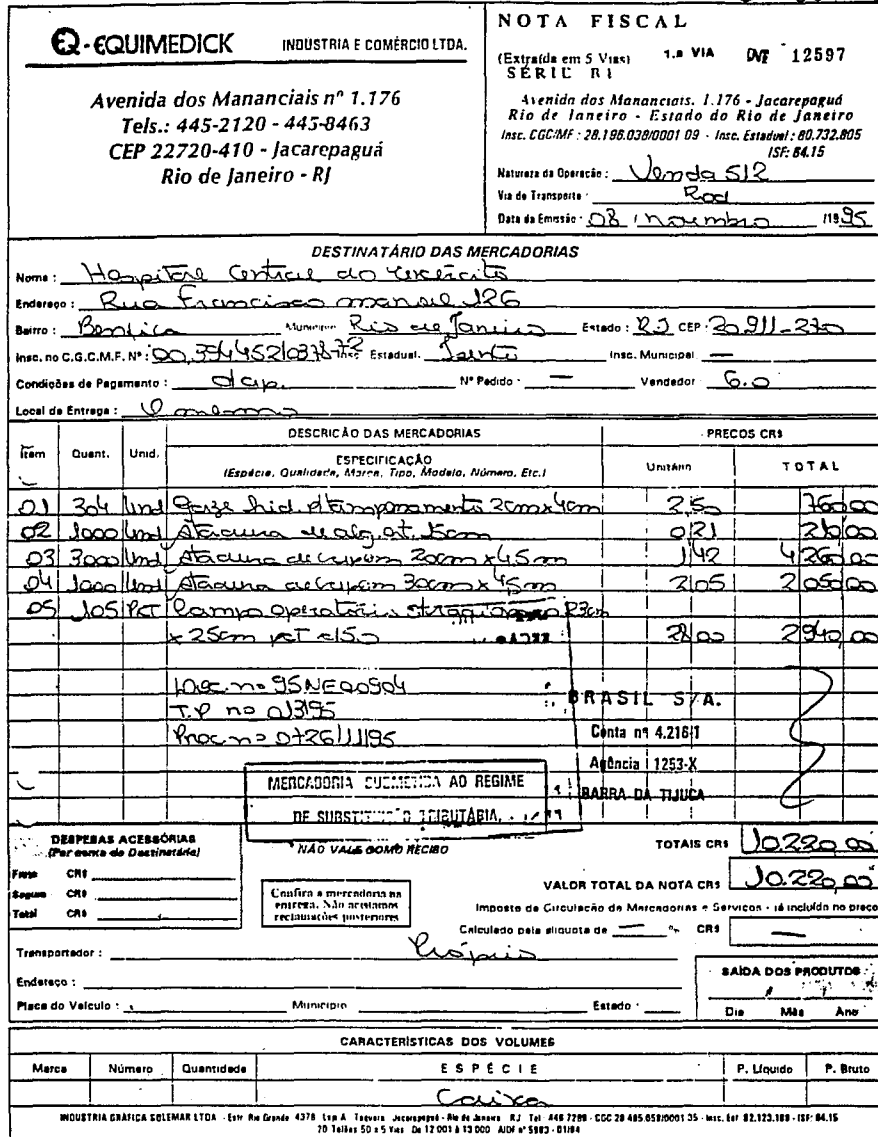 EQUIMEDICK INDÚSTRIA E COMÉRCIO LTDA.
Avenida dos Mananciais nº 1.176
Tels.: 445-2120 - 445-8463
CEP 22720-410 - Jacarepaguá
Rio de Janeiro - RJ
NOTA FISCAL
(Extraída em 5 Vias) 1.a VIA Nº 12597
SÉRIE B1
Avenida dos Mananciais, 1.176 - Jacarepaguá
Rio de Janeiro - Estado do Rio de Janeiro
Insc. CGC/MF : 28.196.038/0001 09 - Insc. Estadual : 80.732.805
ISF: 64.15
Natureza da Operação : Venda 512
Via de Transporte : Rod
Data da Emissão : 08 / novembro /1995
DESTINATÁRIO DAS MERCADORIAS
Nome : Hospital Central do Exército
Endereço : Rua Francisco manuel 126
Bairro : Benfica Município Rio de Janeiro Estado : RJ CEP : 20.911-270
Insc. no C.G.C.M.F. Nº : 00.394452/0378-72 Insc. Estadual. Isento Insc. Municipal —
Condições de Pagamento : dap. Nº Pedido - — Vendedor 6.0
Local de Entrega : O mesmo
DESCRIÇÃO DAS MERCADORIAS PREÇOS CR$
Item Quant. Unid. ESPECIFICAÇÃO Unitário TOTAL
(Espécie, Qualidade, Marca, Tipo, Modelo, Número, Etc.)
01 304 Und Gaze hid. p/tamponamento 2cmx4cm 2,50 760,00
02 1000 Und Atadura de alg. ort. 15cm 0,21 210,00
03 3000 Und Atadura de crepom 20cm x 4,5m 1,42 4260,00
04 1000 Und Atadura de crepom 30cm x 4,5m 2,05 2050,00
05 105 Pct Campo operatório 23cm
x 25cm pct c/50 28,00 2940,00
no 95NE00904
T.P no 013/95
Proc no 0726/1/95
BRASIL S/A.
Conta nº 4.216-1
Agência 1253-X
BARRA DA TIJUCA
MERCADORIA SUBMETIDA AO REGIME
DE SUBSTITUIÇÃO TRIBUTÁRIA.
DESPESAS ACESSÓRIAS
(Por conta do Destinatário)
Frete CR$
Seguro CR$
Total CR$
NÃO VALE COMO RECIBO
Confira a mercadoria na
entrega. Não aceitamos
reclamações posteriores
TOTAIS CR$ 10.220,00
VALOR TOTAL DA NOTA CR$ 10.220,00
Imposto de Circulação de Mercadorias e Serviços - já incluído no preço
Calculado pela alíquota de — % CR$ —
Transportador : Próprio
Endereço :
Placa do Veículo : Município Estado -
SAÍDA DOS PRODUTOS
Dia Mês Ano
CARACTERÍSTICAS DOS VOLUMES
Marca Número Quantidade ESPÉCIE P. Líquido P. Bruto
Caixa
INDUSTRIA GRÁFICA SOLEMAR LTDA - Estr Rio Grande 4378 Loja A Taquara Jacarepaguá - Rio de Janeiro RJ Tel 446 7289 - CGC 28 485.059/0001 35 - Insc. Est 82.123.189 - ISF: 64.15
20 Talões 50 x 5 Vias De 12 001 à 13 000 AIDF nº 5983 - 01/94